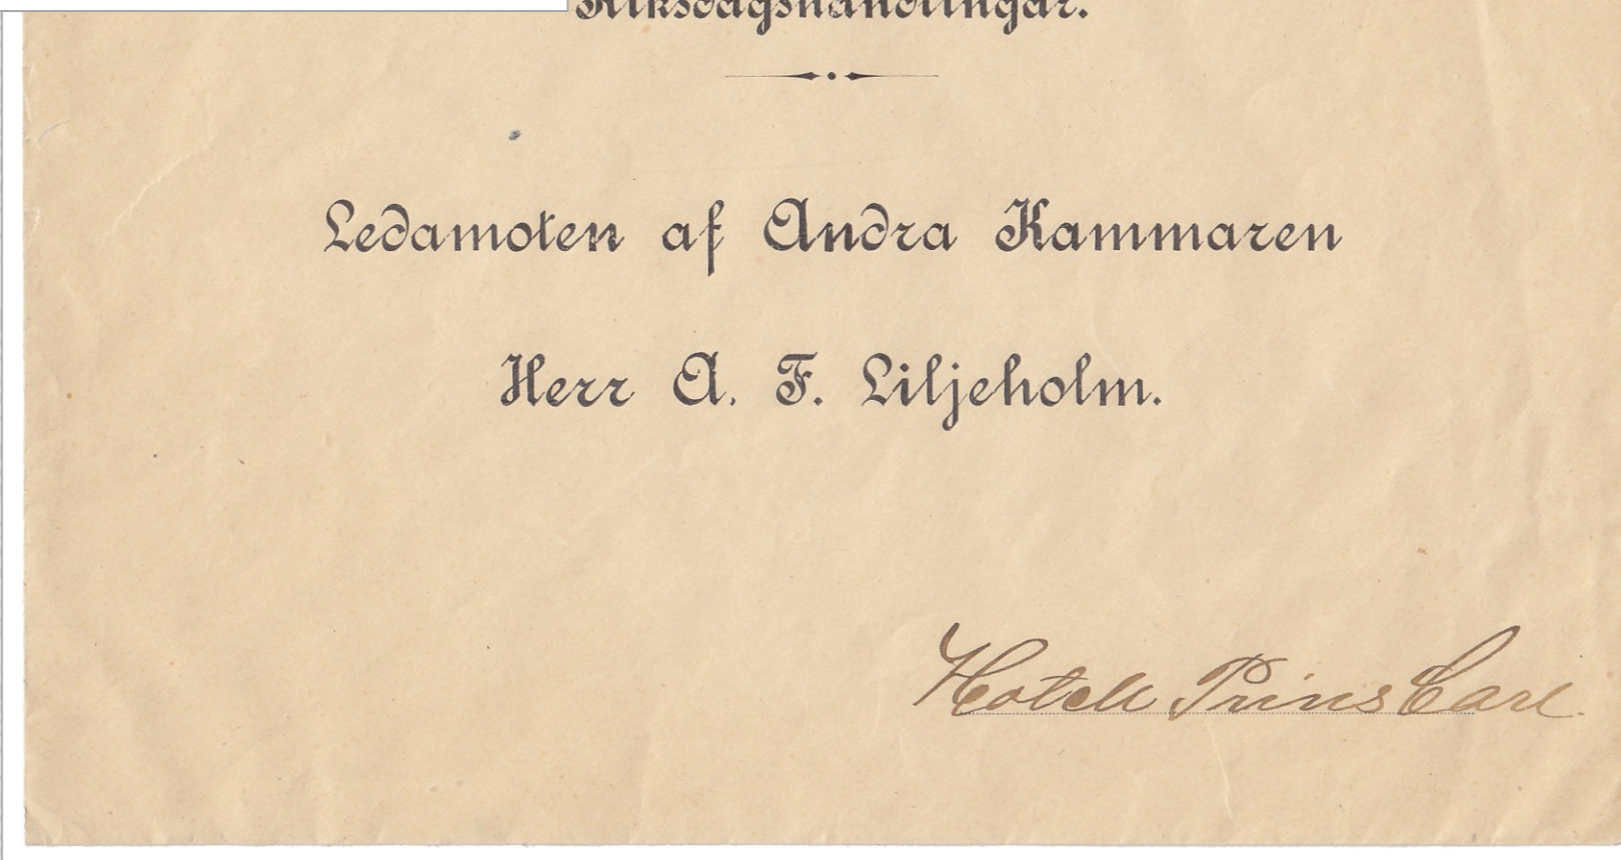 Riksdagshandlingar.
Ledamoten af Andra Kammaren
Herr A. F. Liljeholm.
Hotell Prins Carl.